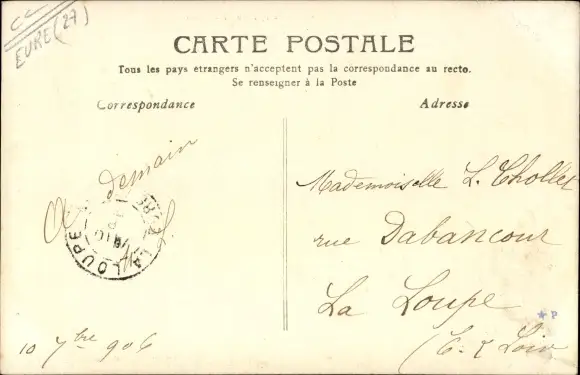 EURE (27)
CARTE POSTALE
Tous les pays étrangers n'acceptent pas la correspondance au recto.
Se renseigner à la Poste
Correspondance
Adresse
A demain
LA LOUPE
10 7bre 906
Mademoiselle L. Chollet
rue Dabancour
La Loupe
(E. & Loir